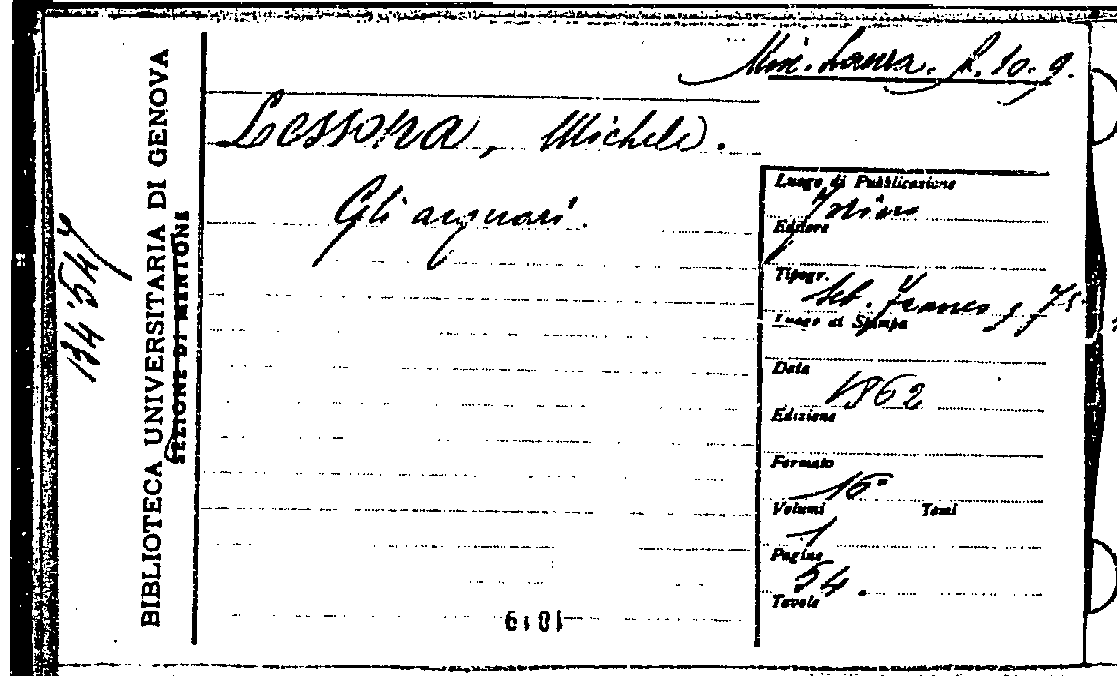 Misc. Lanza. A. 10. 9.
Lessona, Michele.
Gli acquari.
Luogo di Pubblicazione
Torino
Editore
Tipogr.
Seb. Franco
Luogo di Stampa
Data
1862
Edizione
Formato
16°
Volumi Tomi
1
Pagine
54.
Tavole
1819
BIBLIOTECA UNIVERSITARIA DI GENOVA
SEZIONE DI MENTONE